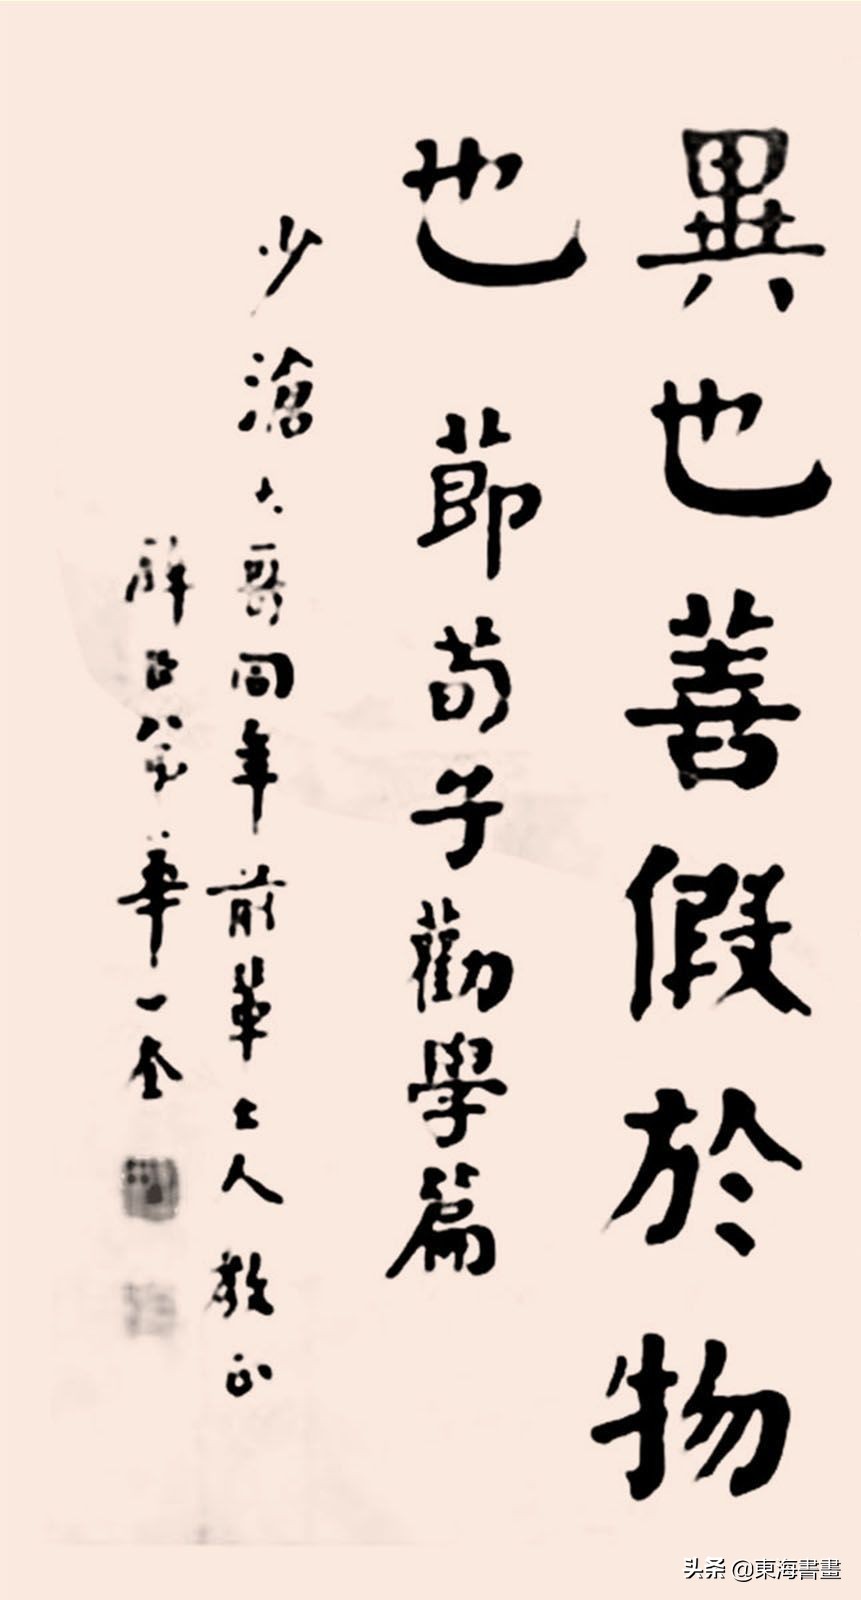 異也善假於物
也 節荀子勸學篇
少滄大哥同年前輩大人教正
臣弟華奎
头条 @東海書畫